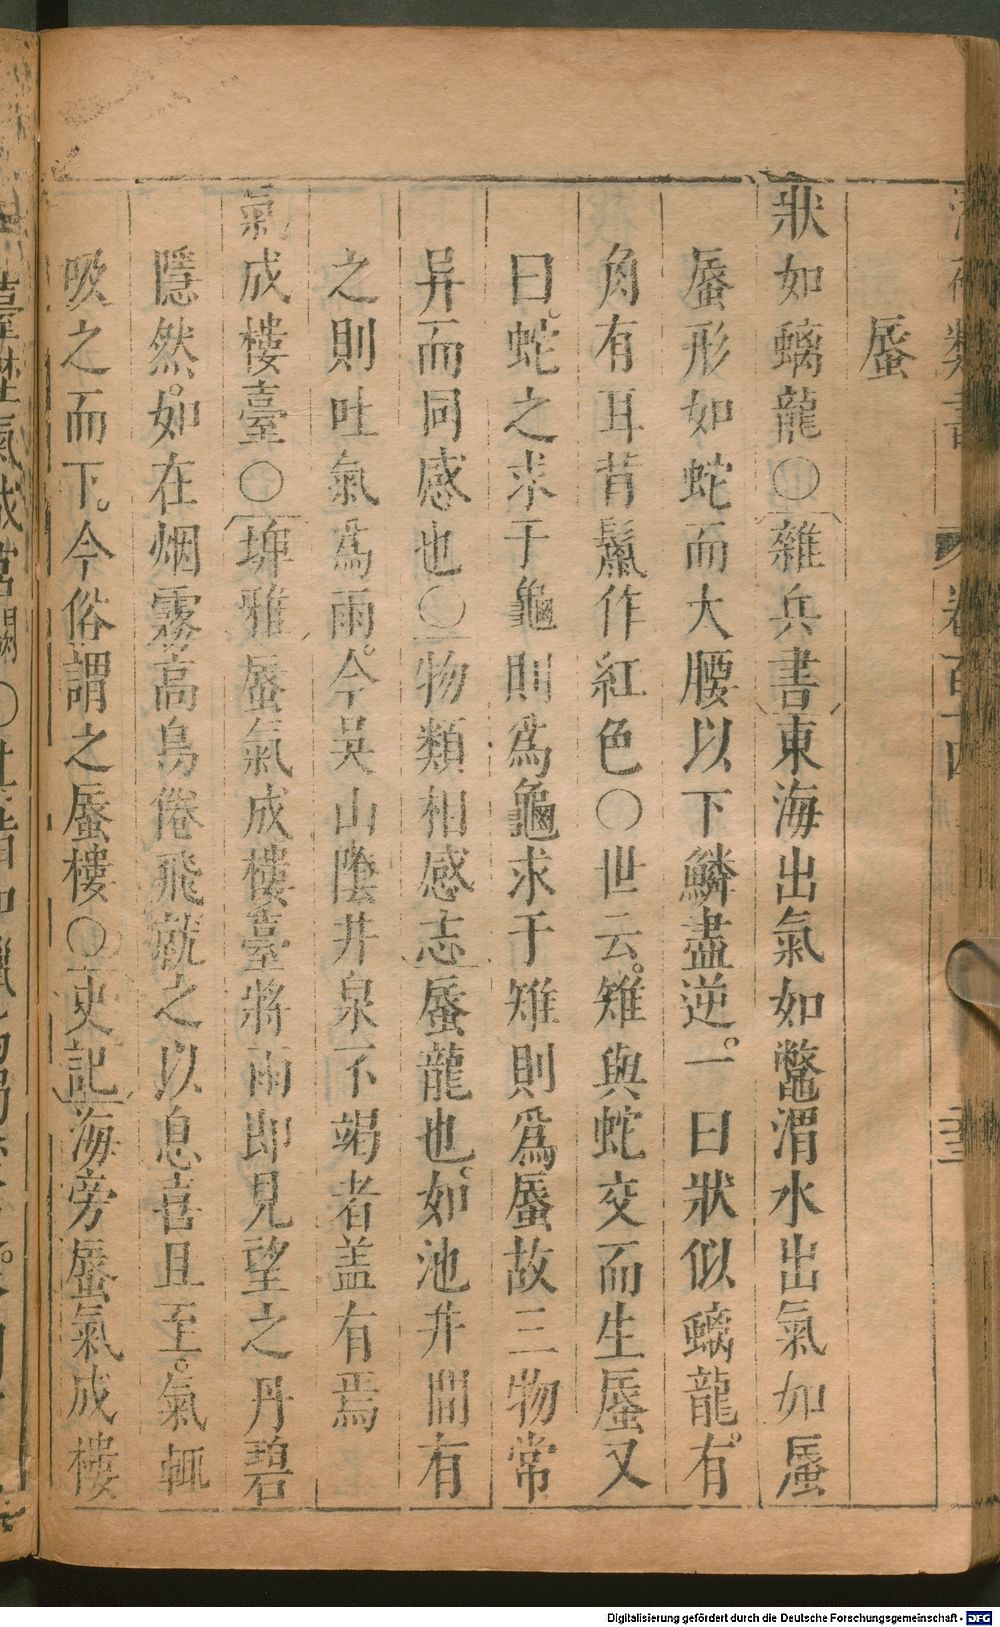 蜃
狀如螭龍○雜兵書東海出氣如鼈渭水出氣如蜃
蜃形如蛇而大腰以下鱗盡逆。一曰狀似螭龍。有
角有耳背鬣作紅色○世云。雉與蛇交而生蜃又
曰。蛇之求于龜則爲龜求于雉則爲蜃故三物常
异而同感也○物類相感志蜃龍也。如池井間有
之則吐氣爲雨。今吳山陰井泉不竭者盖有焉
氣成樓臺○埤雅蜃氣成樓臺將雨即見望之丹碧
隱然。如在烟霧高鳥倦飛就之以息喜且至。氣輒
吸之而下。今俗謂之蜃樓○史記海旁蜃氣成樓
臺
氣成宮闕○
Digitalisierung gefördert durch die Deutsche Forschungsgemeinschaft - DFG